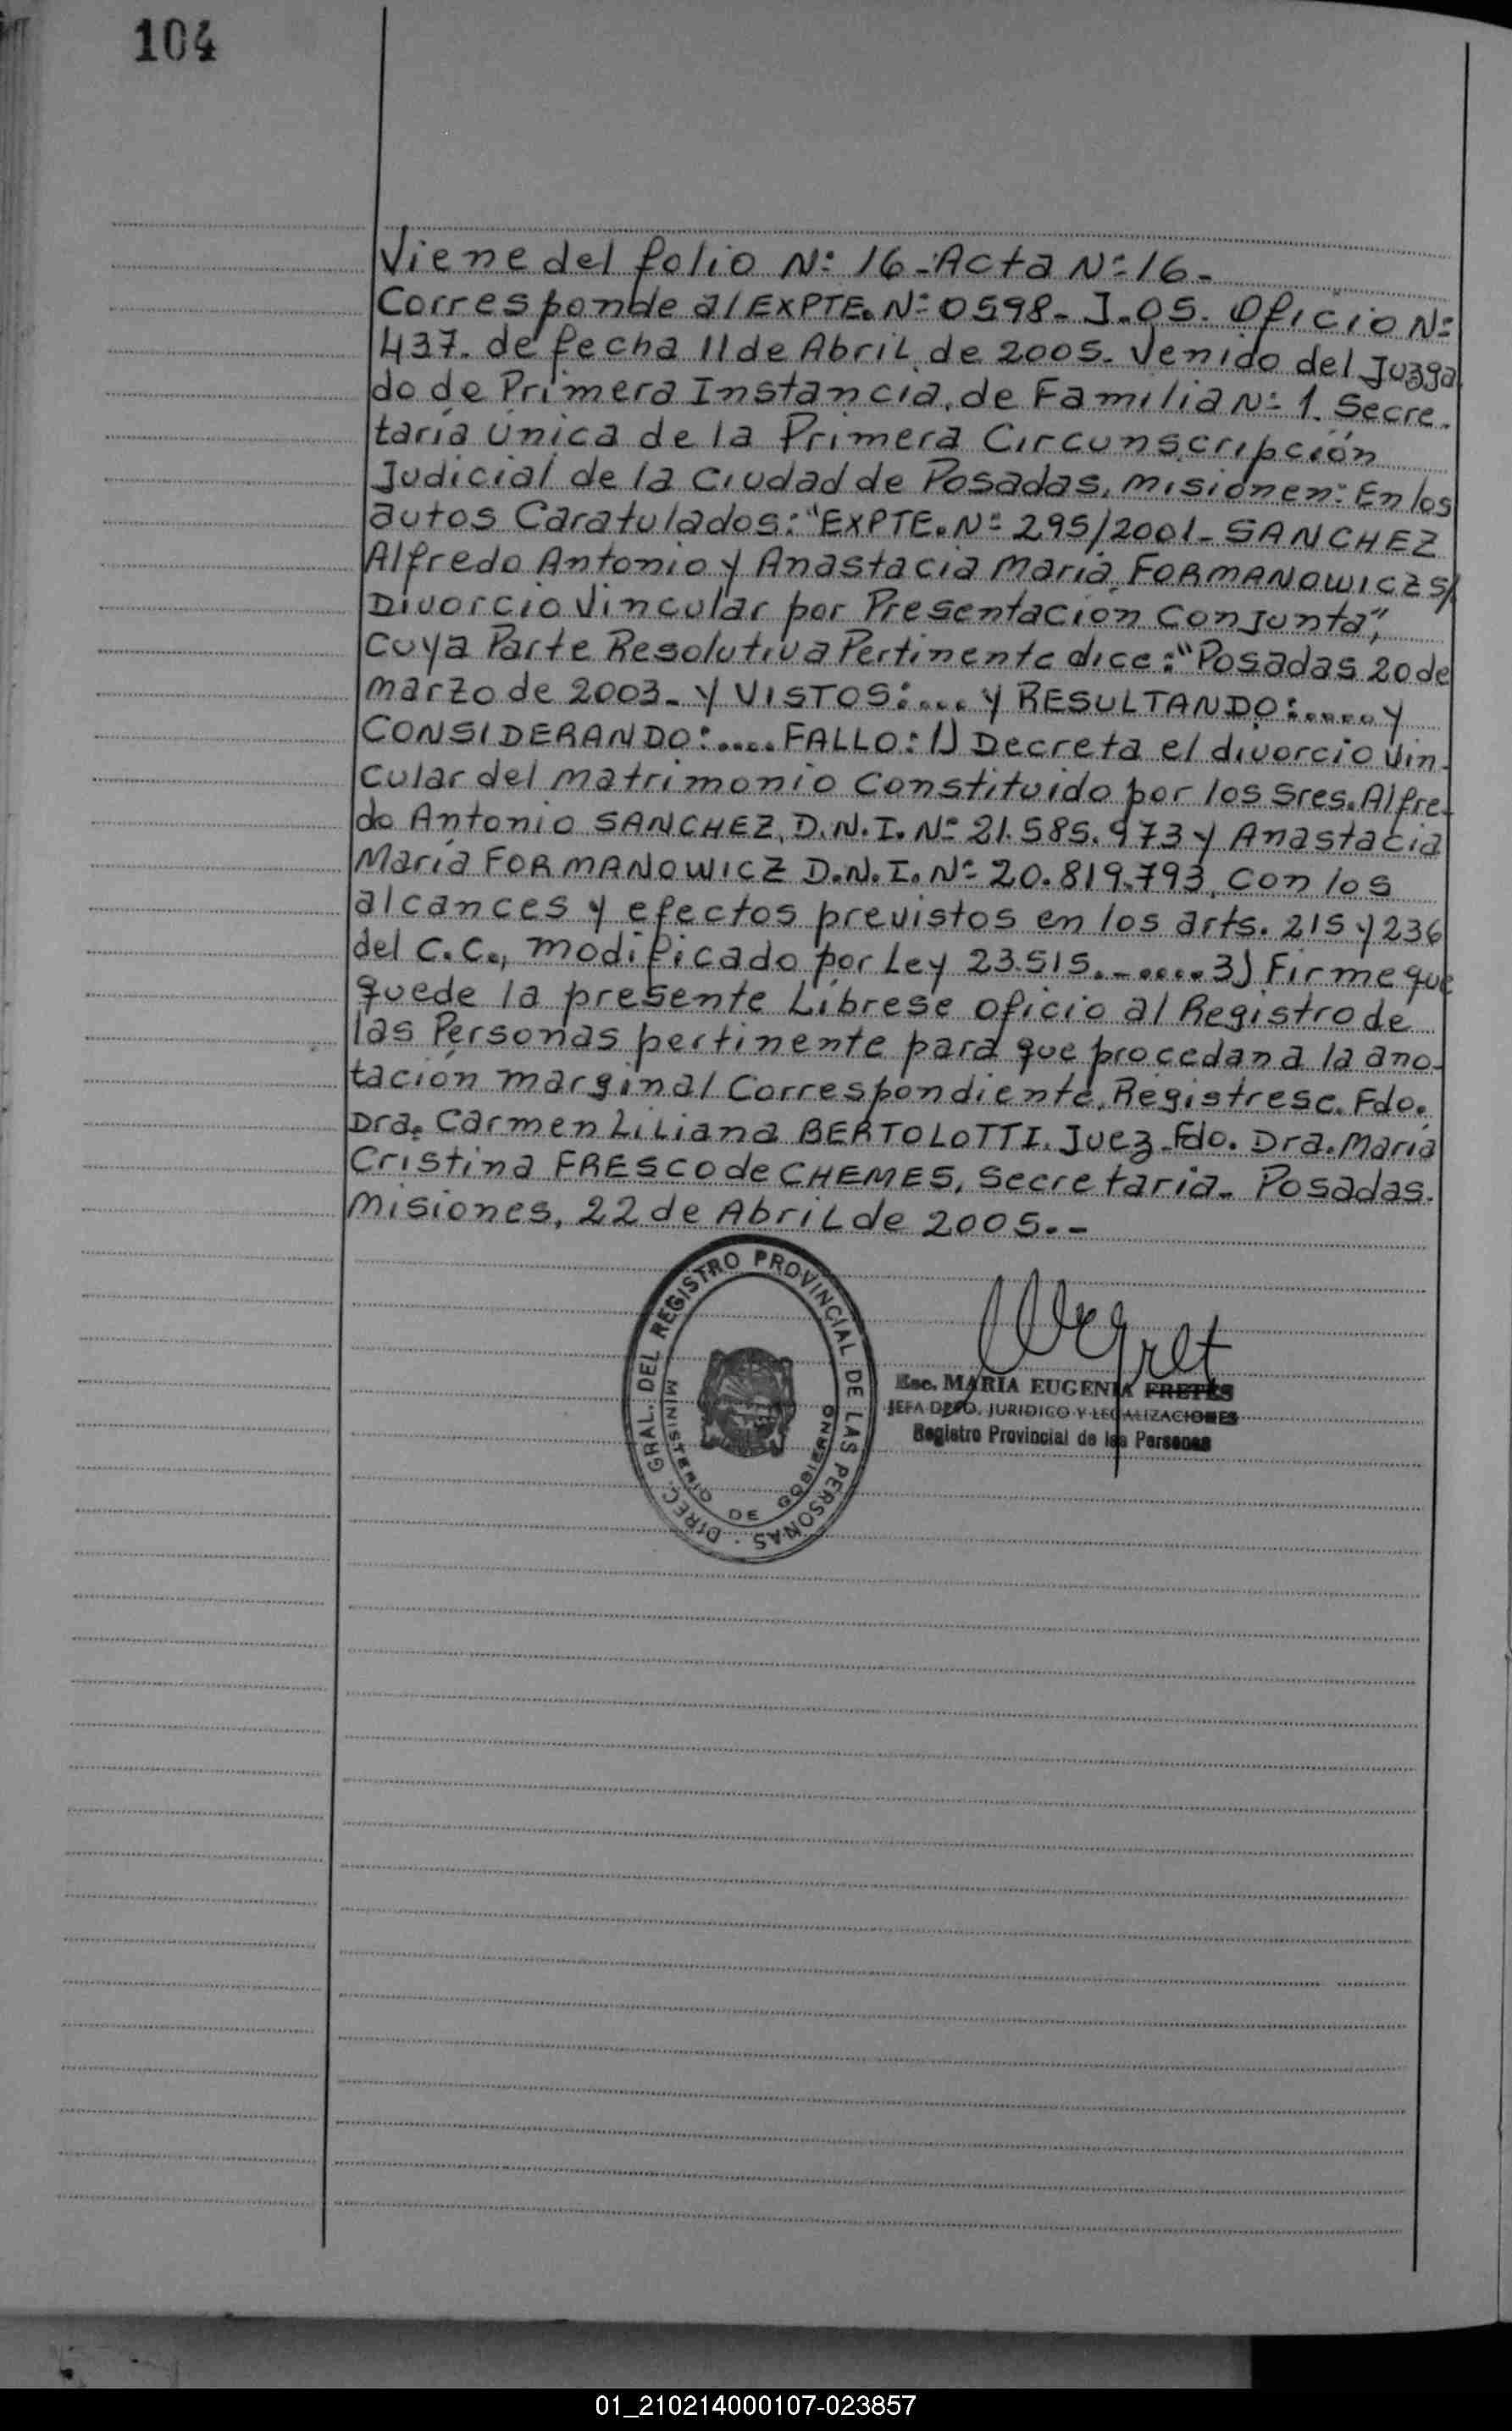 104
Viene del folio Nº 16 - Acta Nº 16 -
Corresponde al EXPTE. Nº 0598 - J - 05. Oficio Nº
437. de fecha 11 de Abril de 2005. Venido del Juzga
do de Primera Instancia, de Familia Nº 1. Secre.
taría Única de la Primera Circunscripción
Judicial de la Ciudad de Posadas, Misionen: En los
autos Caratulados: "EXPTE. Nº 295/2001 - SANCHEZ
Alfredo Antonio y Anastacia María FORMANOWICZ S/
Divorcio Vincular por Presentación Conjunta",
Cuya Parte Resolutiva Pertinente dice: "Posadas 20 de
marzo de 2003 - Y VISTOS:.... y RESULTANDO:..... y
CONSIDERANDO:..... FALLO: 1) Decreta el divorcio Vin-
cular del matrimonio Constituido por los Sres. Alfre-
do Antonio SANCHEZ, D.N.I. Nº 21.585.973 y Anastacia
María FORMANOWICZ D.N.I. Nº 20.819.793, Con los
alcances y efectos previstos en los arts. 215 y 236
del C.C., modificado por Ley 23.515. - ..... 3) Firme que
quede la presente Líbrese oficio al Registro de
las Personas pertinente para que procedan a la ano-
tación marginal Correspondiente. Registrese. Fdo.
Dra. Carmen Liliana BERTOLOTTI. Juez. Fdo. Dra. María
Cristina FRESCO de CHEMES, Secretaria - Posadas.
Misiones, 22 de Abril de 2005. -
DIREC. GRAL. DEL REGISTRO PROVINCIAL DE LAS PERSONAS ·
MINISTERIO DE GOBIERNO
Esc. MARIA EUGENIA FRETES
JEFA DPTO. JURIDICO Y LEGALIZACIONES
Registro Provincial de las Personas
01_210214000107-023857